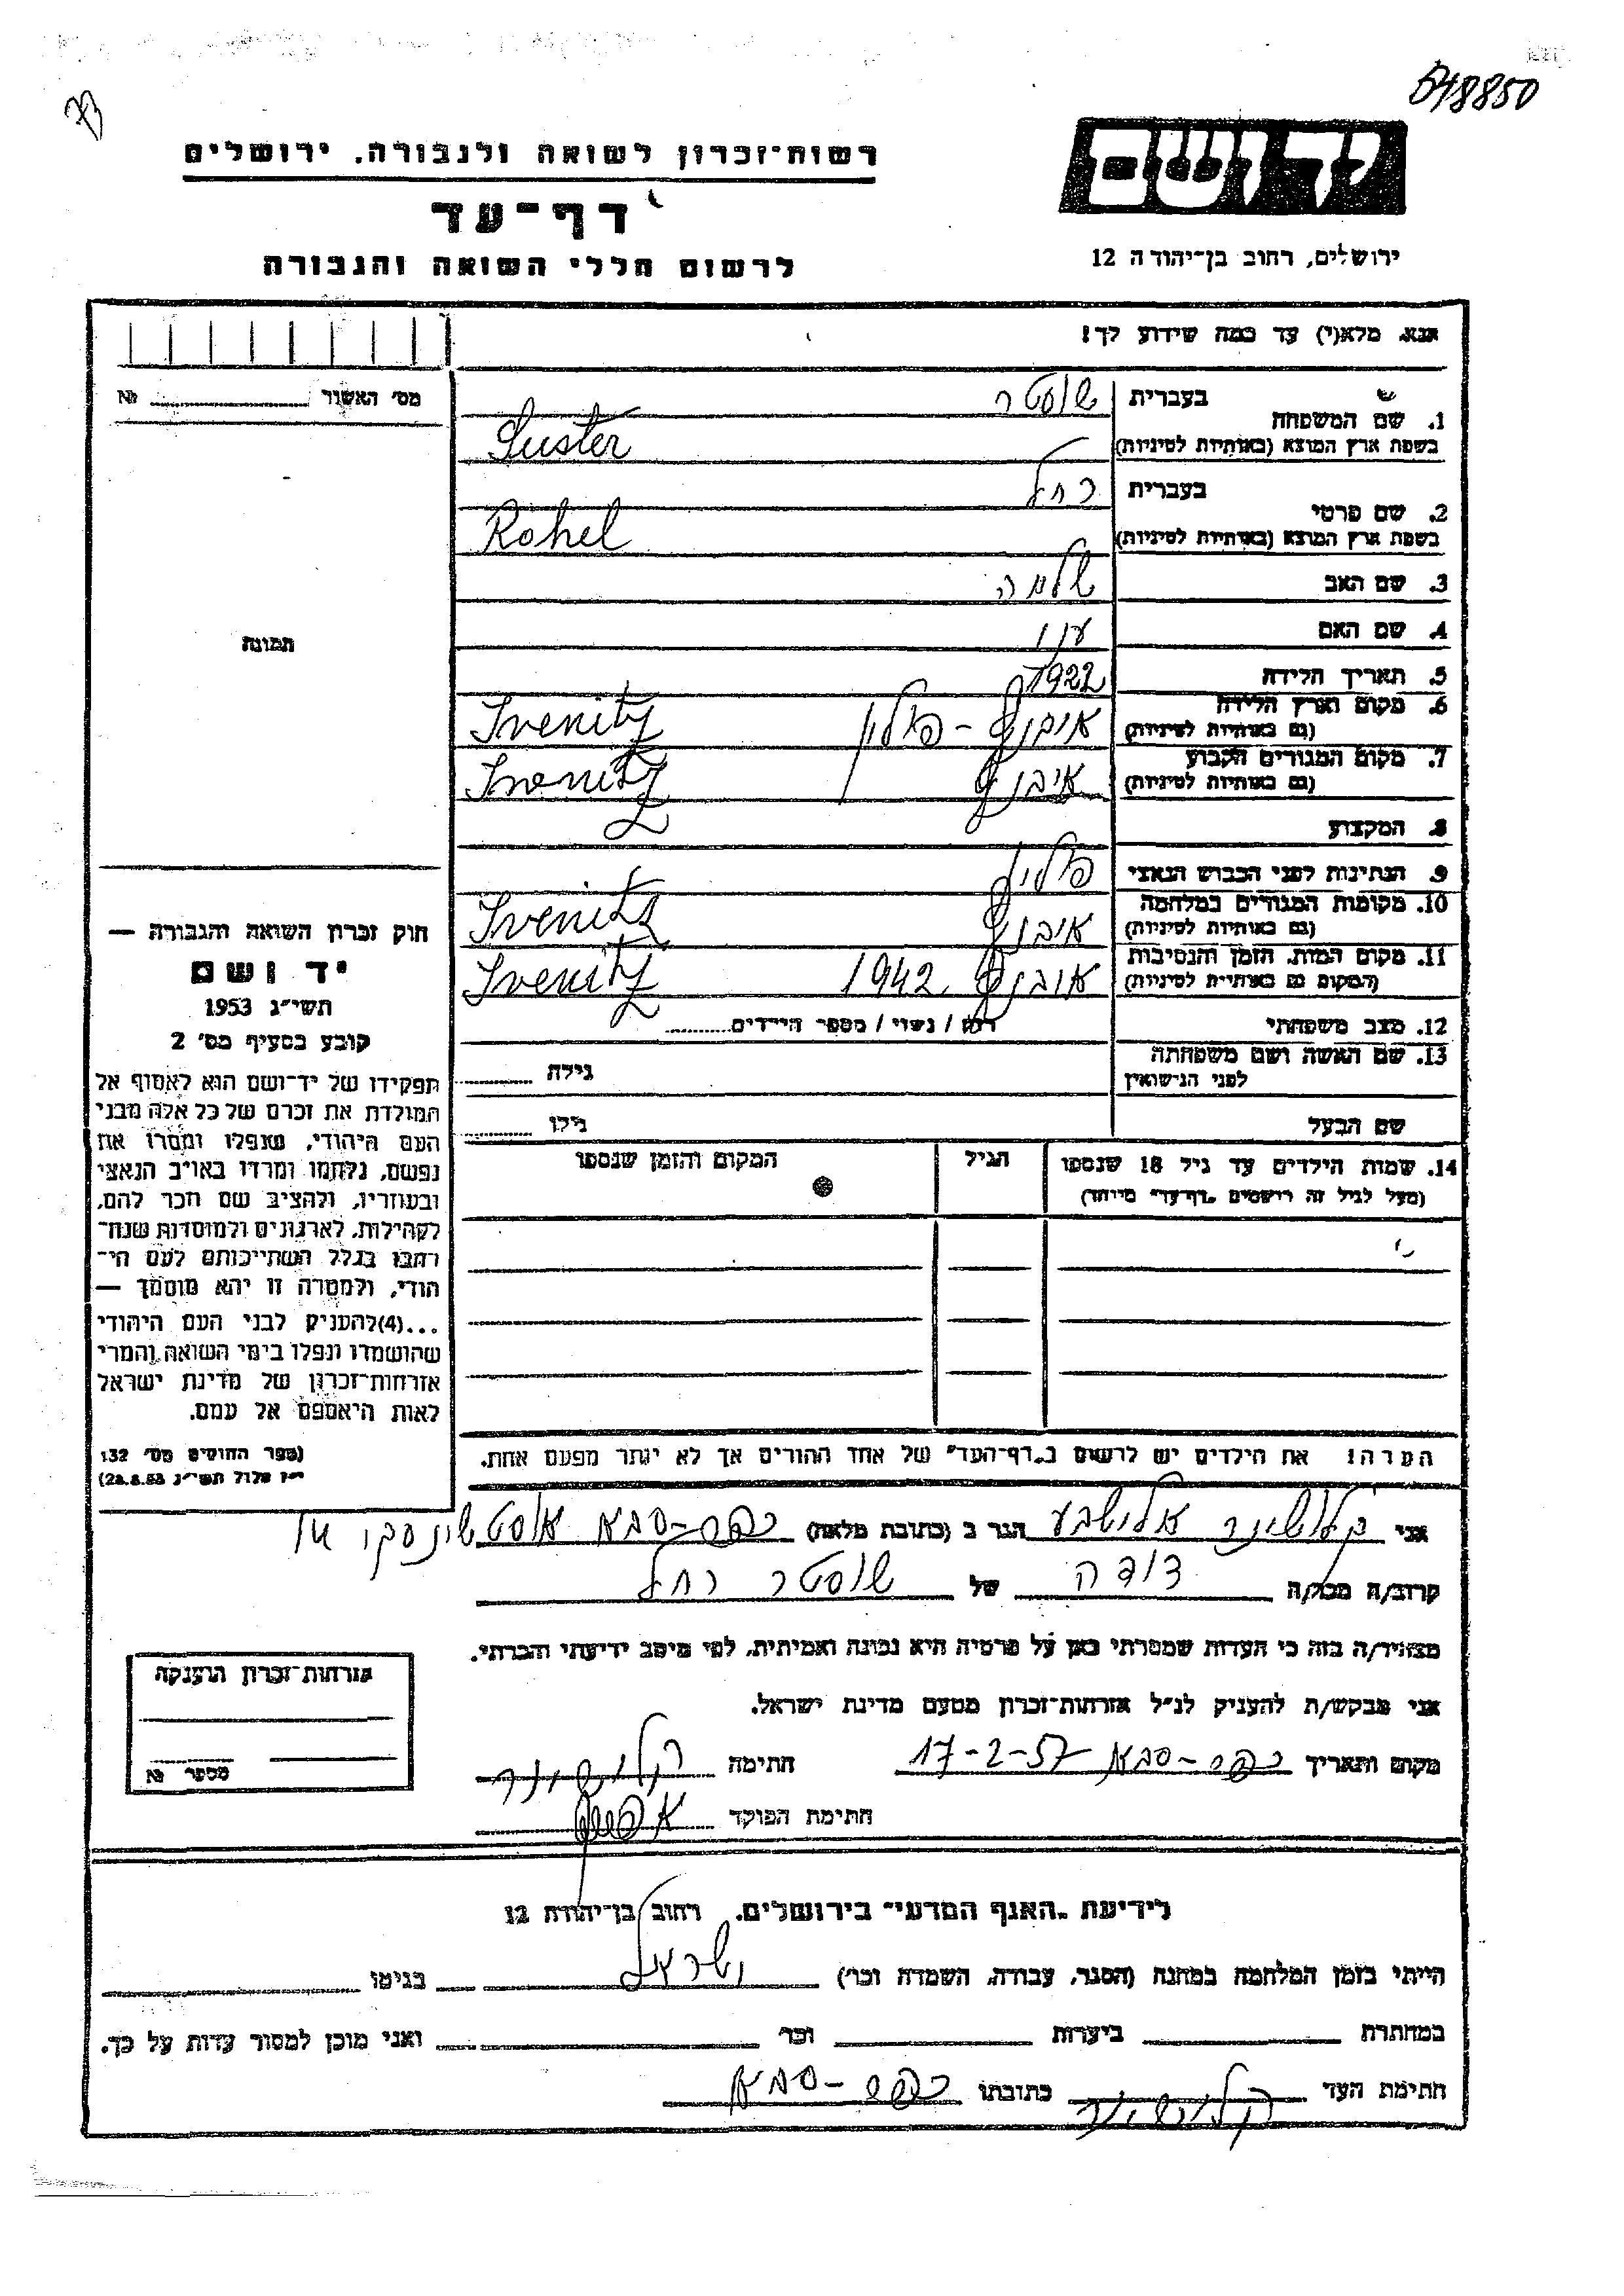 548850
73
יד ושם
רשות־זכרון לשואה ולגבורה. ירושלים
דף־עד
לרשום חללי השואה והגבורה
ירושלים, רחוב בן־יהודה 12
אנא. מלא(י) עד כמה שידוע לך!
מס׳ האשור № 
בעברית שוסטר
1. שם המשפחה
בשפת ארץ המוצא (באותיות לטיניות) Suster
בעברית רחל
2. שם פרטי
בשפת ארץ המוצא (באותיות לטיניות) Rohel
3. שם האב שלמה
4. שם האם
5. תאריך הלידה 1922
6. מקום וארץ הלידה
(גם באותיות לטיניות) איבניץ - פולין Ivenitz
7. מקום המגורים הקבוע
(גם באותיות לטיניות) איבניץ Ivenitz
8. המקצוע
9. הנתינות לפני הכבוש הנאצי
10. מקומות המגורים במלחמה
(גם באותיות לטיניות) איבניץ Ivenitz
11. מקום המות, הזמן והנסיבות
(המקום גם באותיות לטיניות) איבניץ 1942 Ivenitz
12. מצב משפחתי רוק / נשוי / מספר הילדים
13. שם האשה ושם משפחתה
לפני הנישואין גילה
שם הבעל גילו
14. שמות הילדים עד גיל 18 שנספו הגיל המקום והזמן שנספו
(מעל לגיל זה רושמים „דף־עד" מיוחד)
תמונה
חוק זכרון השואה והגבורה —
יד ושם
תשי״ג 1953
קובע בסעיף מס׳ 2
תפקידו של יד־ושם הוא לאסוף אל
המולדת את זכרם של כל אלה מבני
העם היהודי, שנפלו ומסרו את
נפשם, נלחמו ומרדו באויב הנאצי
ובעוזריו, ולהציב שם וזכר להם,
לקהילות, לארגונים ולמוסדות שנח־
רבו בגלל השתייכותם לעם הי־
הודי, ולמטרה זו יהא מוסמך —
...(4)להעניק לבני העם היהודי
שהושמדו ונפלו בימי השואה והמרי
אזרחות־זכרון של מדינת ישראל
לאות היאספם אל עמם.
(ספר החוקים מס׳ 132
י״ז אלול תשי״ג 28.8.53)
הערה! את הילדים יש לרשום ב„דף־העד" של אחד ההורים אך לא יותר מפעם אחת.
אני אלישבע הגר ב (כתובת מלאה) כפר-סבא
קרוב/ה מכר/ה דודה של שוסטר רחל
מצהיר/ה בזה כי העדות שמסרתי כאן על פרטיה היא נכונה ואמיתית, לפי מיטב ידיעתי והכרתי.
אני מבקש/ת להעניק לנ״ל אזרחות־זכרון מטעם מדינת ישראל.
מקום ותאריך כפר-סבא 17-2-57 חתימה
חתימת הפוקד
אזרחות־זכרון הוענקה
מספר №
לידיעת „האגף המדעי" בירושלים. רחוב בן־יהודה 12
הייתי בזמן המלחמה במחנה (הסגר, עבודה, השמדה וכו׳) ישראל בגיטו
במחתרת ביערות וכו׳ ואני מוכן למסור עדות על כך.
חתימת העד כתובתו כפר-סבא